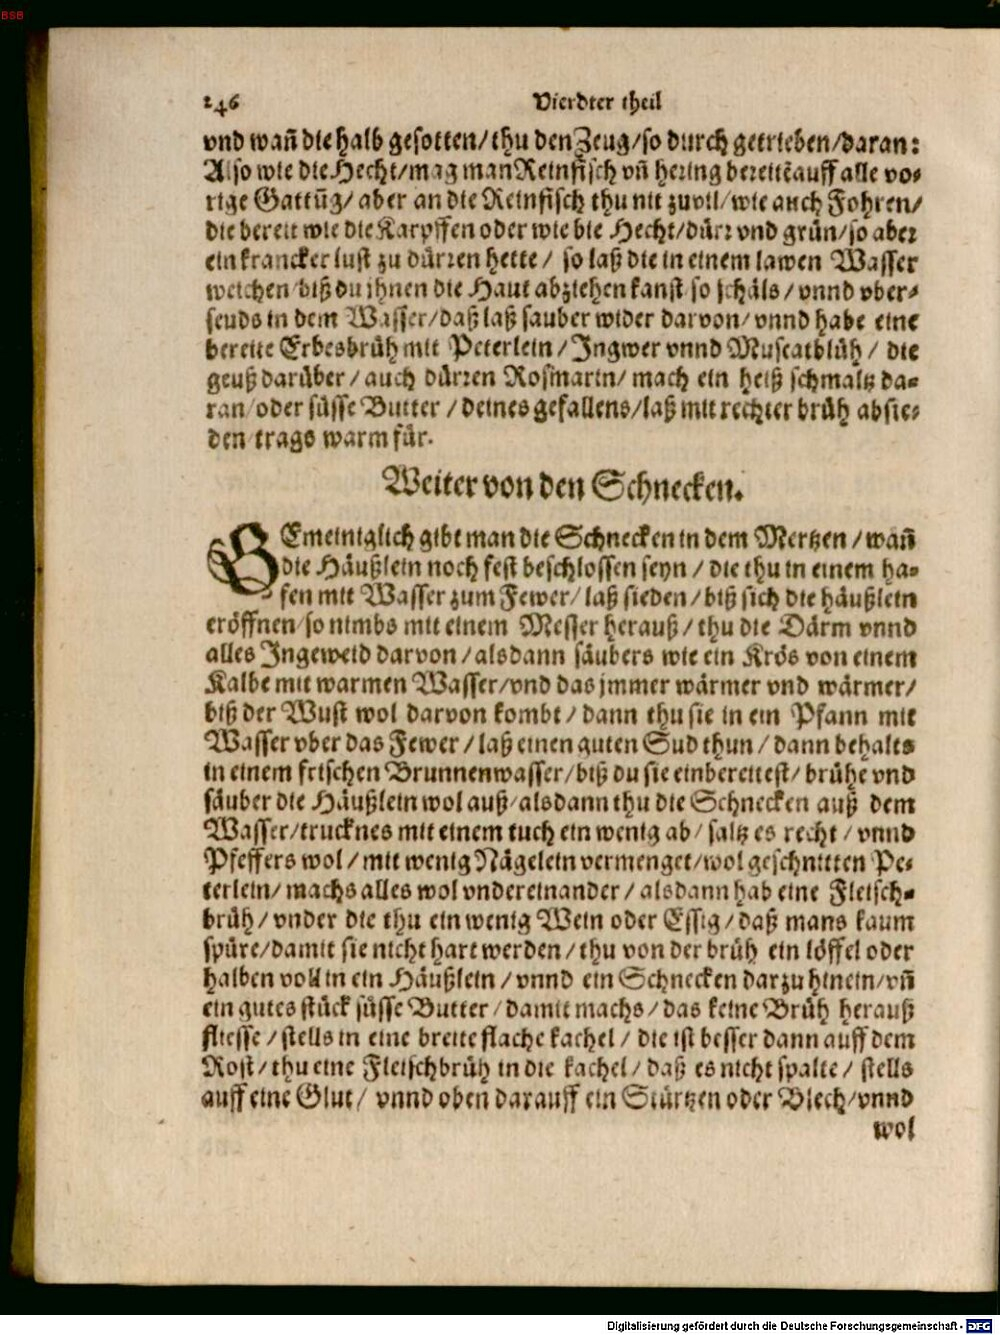 BSB
246 Vierdter theil
vnd wañ die halb gesotten/thu den Zeug/so durch getrieben/daran:
Also wie die Hecht/mag man Reinfisch vñ hering bereitẽ auff alle vo-
rige Gattũg/ aber an die Reinfisch thu nit zuvil/wie auch Fohren/
die bereit wie die Karpffen oder wie die Hecht/dürr vnd grün/so aber
ein krancker lust zu dürren hette / so laß die in einem lawen Wasser
weichen/biß du ihnen die Haut abziehen kanst so schäls / vnnd vber-
seuds in dem Wasser/daß laß sauber wider darvon/ vnnd habe eine
bereite Erbesbrüh mit Peterlein / Ingwer vnnd Muscatblüh / die
geuß darüber / auch dürren Rosmarin/ mach ein heiß schmaltz da-
ran/oder süsse Butter / deines gefallens/laß mit rechter brüh absie-
den/trags warm für.
Weiter von den Schnecken.
GEmeiniglich gibt man die Schnecken in dem Mertzen / wañ
die Häußlein noch fest beschlossen seyn / die thu in einem ha-
fen mit Wasser zum Fewer/ laß sieden / biß sich die häußlein
eröffnen/so nimbs mit einem Messer herauß / thu die Därm vnnd
alles Ingeweid darvon / alsdann säubers wie ein Krös von einem
Kalbe mit warmen Wasser/vnd das jmmer wärmer vnd wärmer/
biß der Wust wol darvon kombt / dann thu sie in ein Pfann mit
Wasser vber das Fewer / laß einen guten Sud thun / dann behalts
in einem frischen Brunnenwasser/biß du sie einbereitest/ brühe vnd
säuber die Häußlein wol auß/alsdann thu die Schnecken auß dem
Wasser/trucknes mit einem tuch ein wenig ab/ saltz es recht / vnnd
Pfeffers wol / mit wenig Nägelein vermenget/wol geschnitten Pe-
terlein/ machs alles wol vndereinander / alsdann hab eine Fleisch-
brüh / vnder die thu ein wenig Wein oder Essig / daß mans kaum
spüre/damit sie nicht hart werden / thu von der brüh ein löffel oder
halben voll in ein Häußlein / vnnd ein Schnecken darzu hinein/vñ
ein gutes stück süsse Butter / damit machs / das keine Brüh herauß
fliesse / stells in eine breite flache kachel / die ist besser dann auff dem
Rost / thu eine Fleischbrüh in die kachel/ daß es nicht spalte / stells
auff eine Glut / vnnd oben darauff ein Stürtzen oder Blech/vnnd
wol
Digitalisierung gefördert durch die Deutsche Forschungsgemeinschaft - DFG